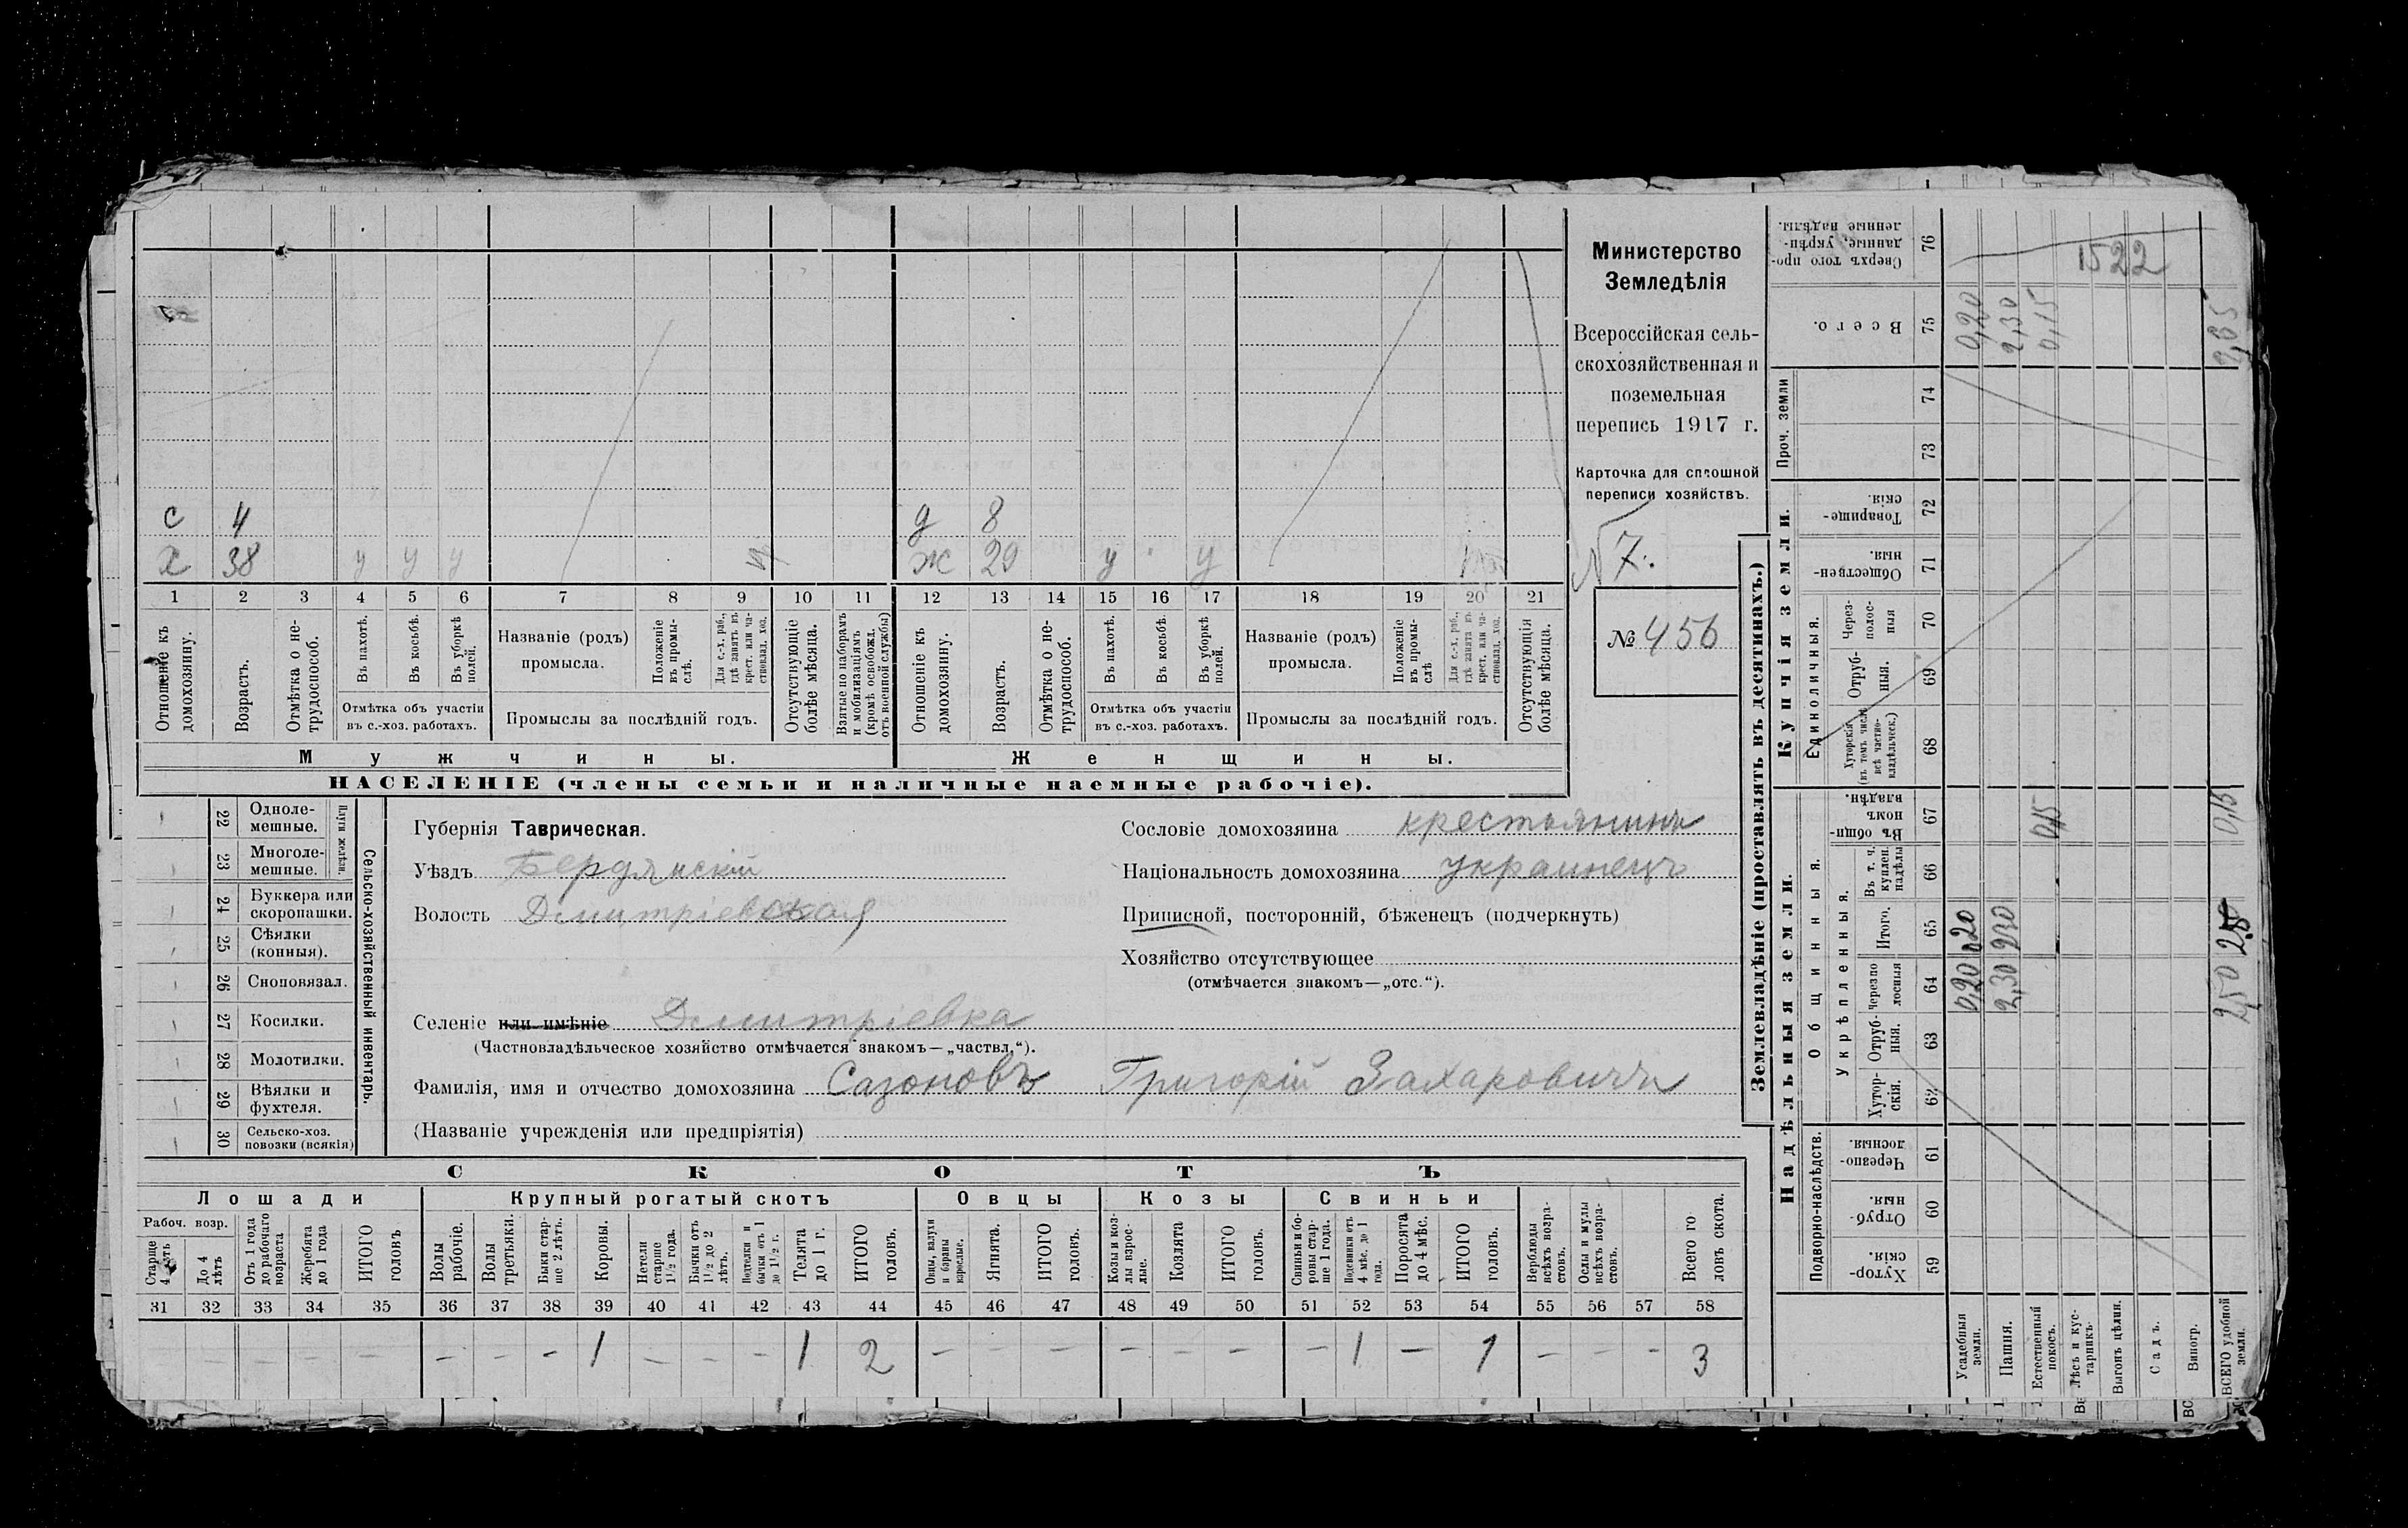 с 4 д 8
х 38 у у у ж 29 у у
1 2 3 4 5 6 7 8 9 10 11 12 13 14 15 16 17 18 19 20 21
Отношеніе къ домохозяину.
Возрастъ.
Отмѣтка о не-трудоспособ.
Въ пахотѣ.
Въ косьбѣ.
Въ уборкѣ полей.
Отмѣтка объ участіи
въ с.-хоз. работахъ.
Названіе (родъ)
промысла.
Положеніе въ промы-слѣ.
Для с.-х. раб., гдѣ занятъ въ крест. или ча-стновлад. хоз.
Промыслы за послѣдній годъ.
Отсутствующіе болѣе мѣсяца.
Взятые по наборамъ и мобилизаціямъ (кромѣ освобожд. отъ военной службы)
Отношеніе къ домохозяину.
Возрастъ.
Отмѣтка о не-трудоспособ.
Въ пахотѣ.
Въ косьбѣ.
Въ уборкѣ полей.
Отмѣтка объ участіи
въ с.-хоз. работахъ.
Названіе (родъ)
промысла.
Положеніе въ промы-слѣ
Для с.-х. раб., гдѣ занята въ крест. или ча-стновлад. хоз.
Промыслы за послѣдній годъ.
Отсутствующія болѣе мѣсяца.
Мужчины. Женщины.
НАСЕЛЕНІЕ (члены семьи и наличные наемные рабочіе).
Министерство
Земледѣлія
Всероссійская сель-
скохозяйственная и
поземельная
перепись 1917 г.
Карточка для сплошной
переписи хозяйствъ.
№ 7.
№ 456
22 Одноле-
мешные.
23 Многоле-
мешные.
Плуги желѣзн.
24 Буккера или
скоропашки.
25 Сѣялки
(конныя).
26 Сноповязал.
27 Косилки.
28 Молотилки.
29 Вѣялки и
фухтеля.
30 Сельско-хоз.
повозки (всякія)
Сельско-хозяйственный инвентарь.
Губернія Таврическая.
Уѣздъ Бердянскій
Волость Дмитріевская
Селеніе или имѣніе Дмитріевка
(Частновладѣльческое хозяйство отмѣчается знакомъ—„частвл.“).
Фамилія, имя и отчество домохозяина Сазоновъ Григорій Захаровичъ
(Названіе учрежденія или предпріятія)
Сословіе домохозяина крестьянинъ
Національность домохозяина украинецъ
Приписной, посторонній, бѣженецъ (подчеркнуть)
Хозяйство отсутствующее
(отмѣчается знакомъ—„отс.“).
СКОТЪ
Лошади Крупный рогатый скотъ Овцы Козы Свиньи
Рабоч. возр.
Старше 4 лѣтъ
До 4 лѣтъ
Отъ 1 года до рабочаго возраста
Жеребята до 1 года
ИТОГО головъ
Волы рабочіе.
Волы третьяки.
Быки стар-ше 2 лѣтъ.
Коровы.
Нетели старше 1½ года.
Бычки отъ 1½ до 2 лѣтъ.
Подтелки и бычки отъ 1 до 1½ г.
Телята до 1 г.
ИТОГО головъ.
Овцы, валухи и бараны взрослые.
Ягнята.
ИТОГО головъ.
Козы и коз-лы взрос-лые.
Козлята
ИТОГО головъ.
Свиньи и бо-ровы стар-ше 1 года.
Подсвинки отъ 4 мѣс. до 1 года.
Поросята до 4 мѣс.
ИТОГО головъ.
Верблюды всѣхъ возра-стовъ.
Ослы и мулы всѣхъ возра-стовъ.
Всего го ловъ скота.
31 32 33 34 35 36 37 38 39 40 41 42 43 44 45 46 47 48 49 50 51 52 53 54 55 56 57 58
– – – – – – 1 – – – 1 2 – – – – – – – 1 – 1 – – – 3
Землевладѣніе (проставлять въ десятинахъ.)
Надѣльныя земли. Купчія земли. Проч. земли
Подворно-наслѣдств.
Общинныя.
Укрѣпленныя.
Единоличныя.
Хутор-скія. 59
Отруб-ныя. 60
Черезпо-лосныя. 61
Хутор-скія. 62
Отруб-ныя. 63
Черезпо лосныя 64
Итого. 65
Въ т. ч. куплен. надѣлы 66
Въ общин-номъ владѣн. 67
Хуторскія (въ томъ числѣ всѣ частно-владѣльческ.) 68
Отруб-ныя. 69
Через-полос-ныя 70
Обществен-ныя. 71
Товарище-скія. 72
73
74
Всего. 75
Сверхъ того про-данные, укрѣп-ленные надѣлы. 76
Усадебныя земли. 0,20 0,20 0,20
Пашня. 2,30 2,30 2,30
Естественный покосъ. 0,15 0,15
Лѣсъ и кус-тарникъ.
Выгонъ цѣлин.
Садъ.
Виногр.
ВСЕГО удобной земли. 2,50 2,50 0,15 2,65
1522